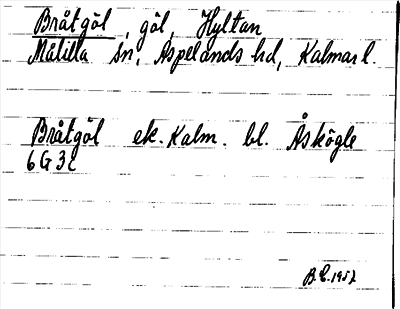 Bråtgöl, göl, Hyltan
Målilla sn, Aspelands hd, Kalmar l.
Bråtgöl ek. Kalm. bl. Åskögle
6G3c
B.E. 1957